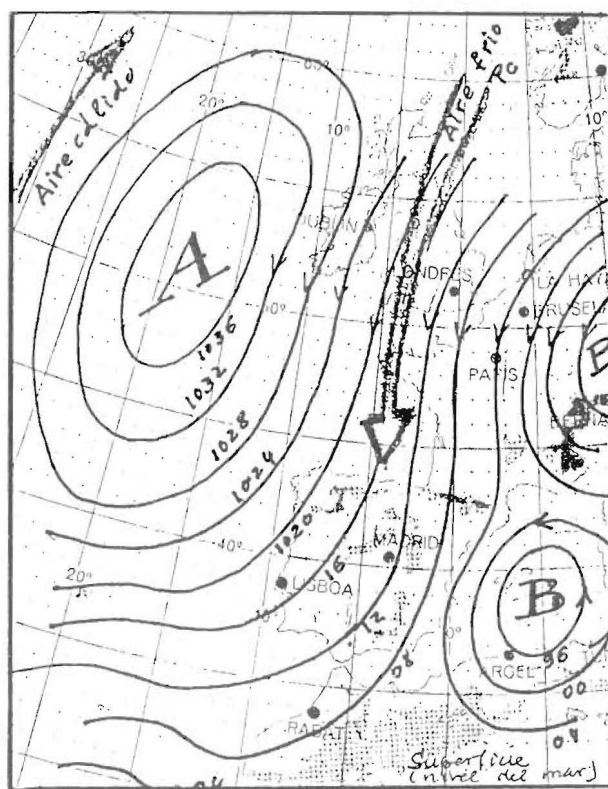 Aire cálido
Aire frio
Pc
30
20°
10°
60°
10°
A
DUBLIN
LONDRES
LA HAYA
BRUSELA
PARIS
B
BERNA
50°
1036
1032
1028
1024
1020
16
12
08
MADRID
LISBOA
40°
20°
10°
0°
B
ARGEL
96
00
04
RABAT
04
Superficie
(nivel del mar)